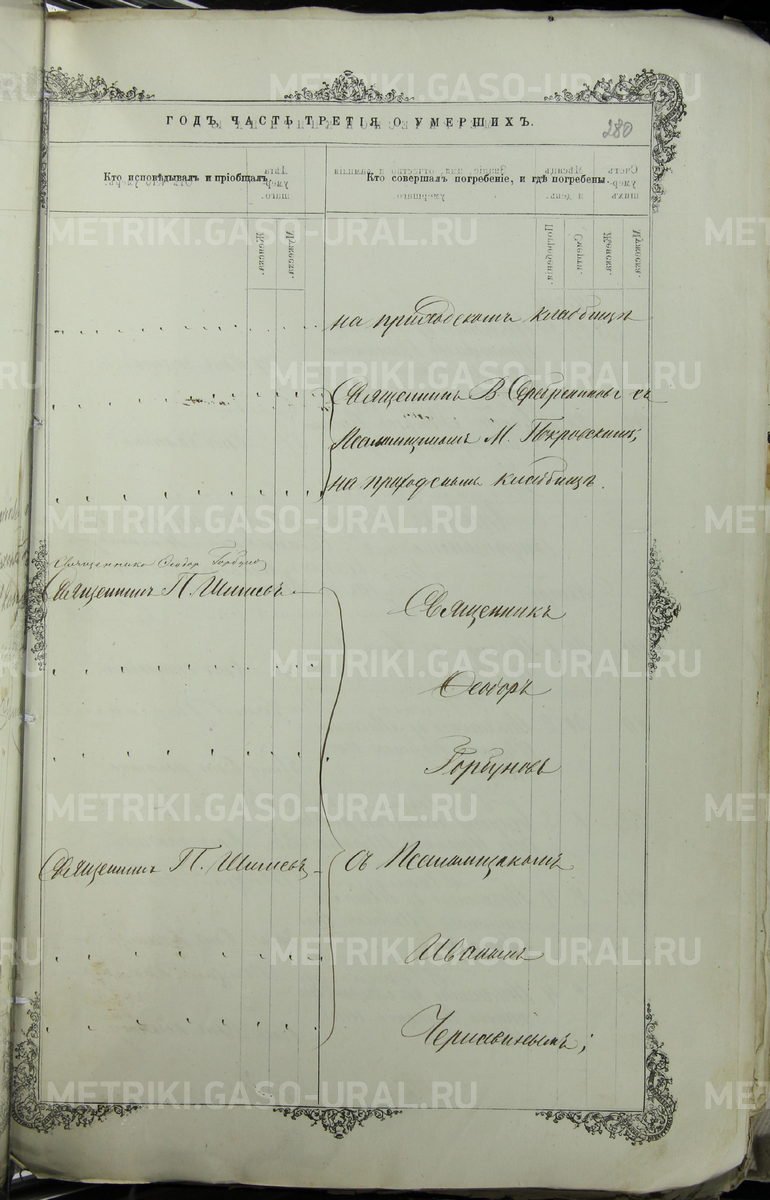 METRIKI.GASO-URAL.RU
ГОДЪ, ЧАСТЬ ТРЕТІЯ О УМЕРШИХЪ.
280
Кто исповѣдывалъ и пріобщалъ.
Кто совершалъ погребеніе, и гдѣ погребены.
на приходскомъ кладбищѣ
Священникъ В Серебренниковъ съ
Псаломщикомъ М. Покровскимъ,
на приходскомъ кладбищѣ.
Священникъ Ѳеодоръ Горбуновъ
Священникъ П. Шишевъ
Священникъ
Ѳеодоръ
Горбуновъ
Священникъ П. Шишевъ
съ Псаломщикомъ
Иваномъ
Чернавинымъ;